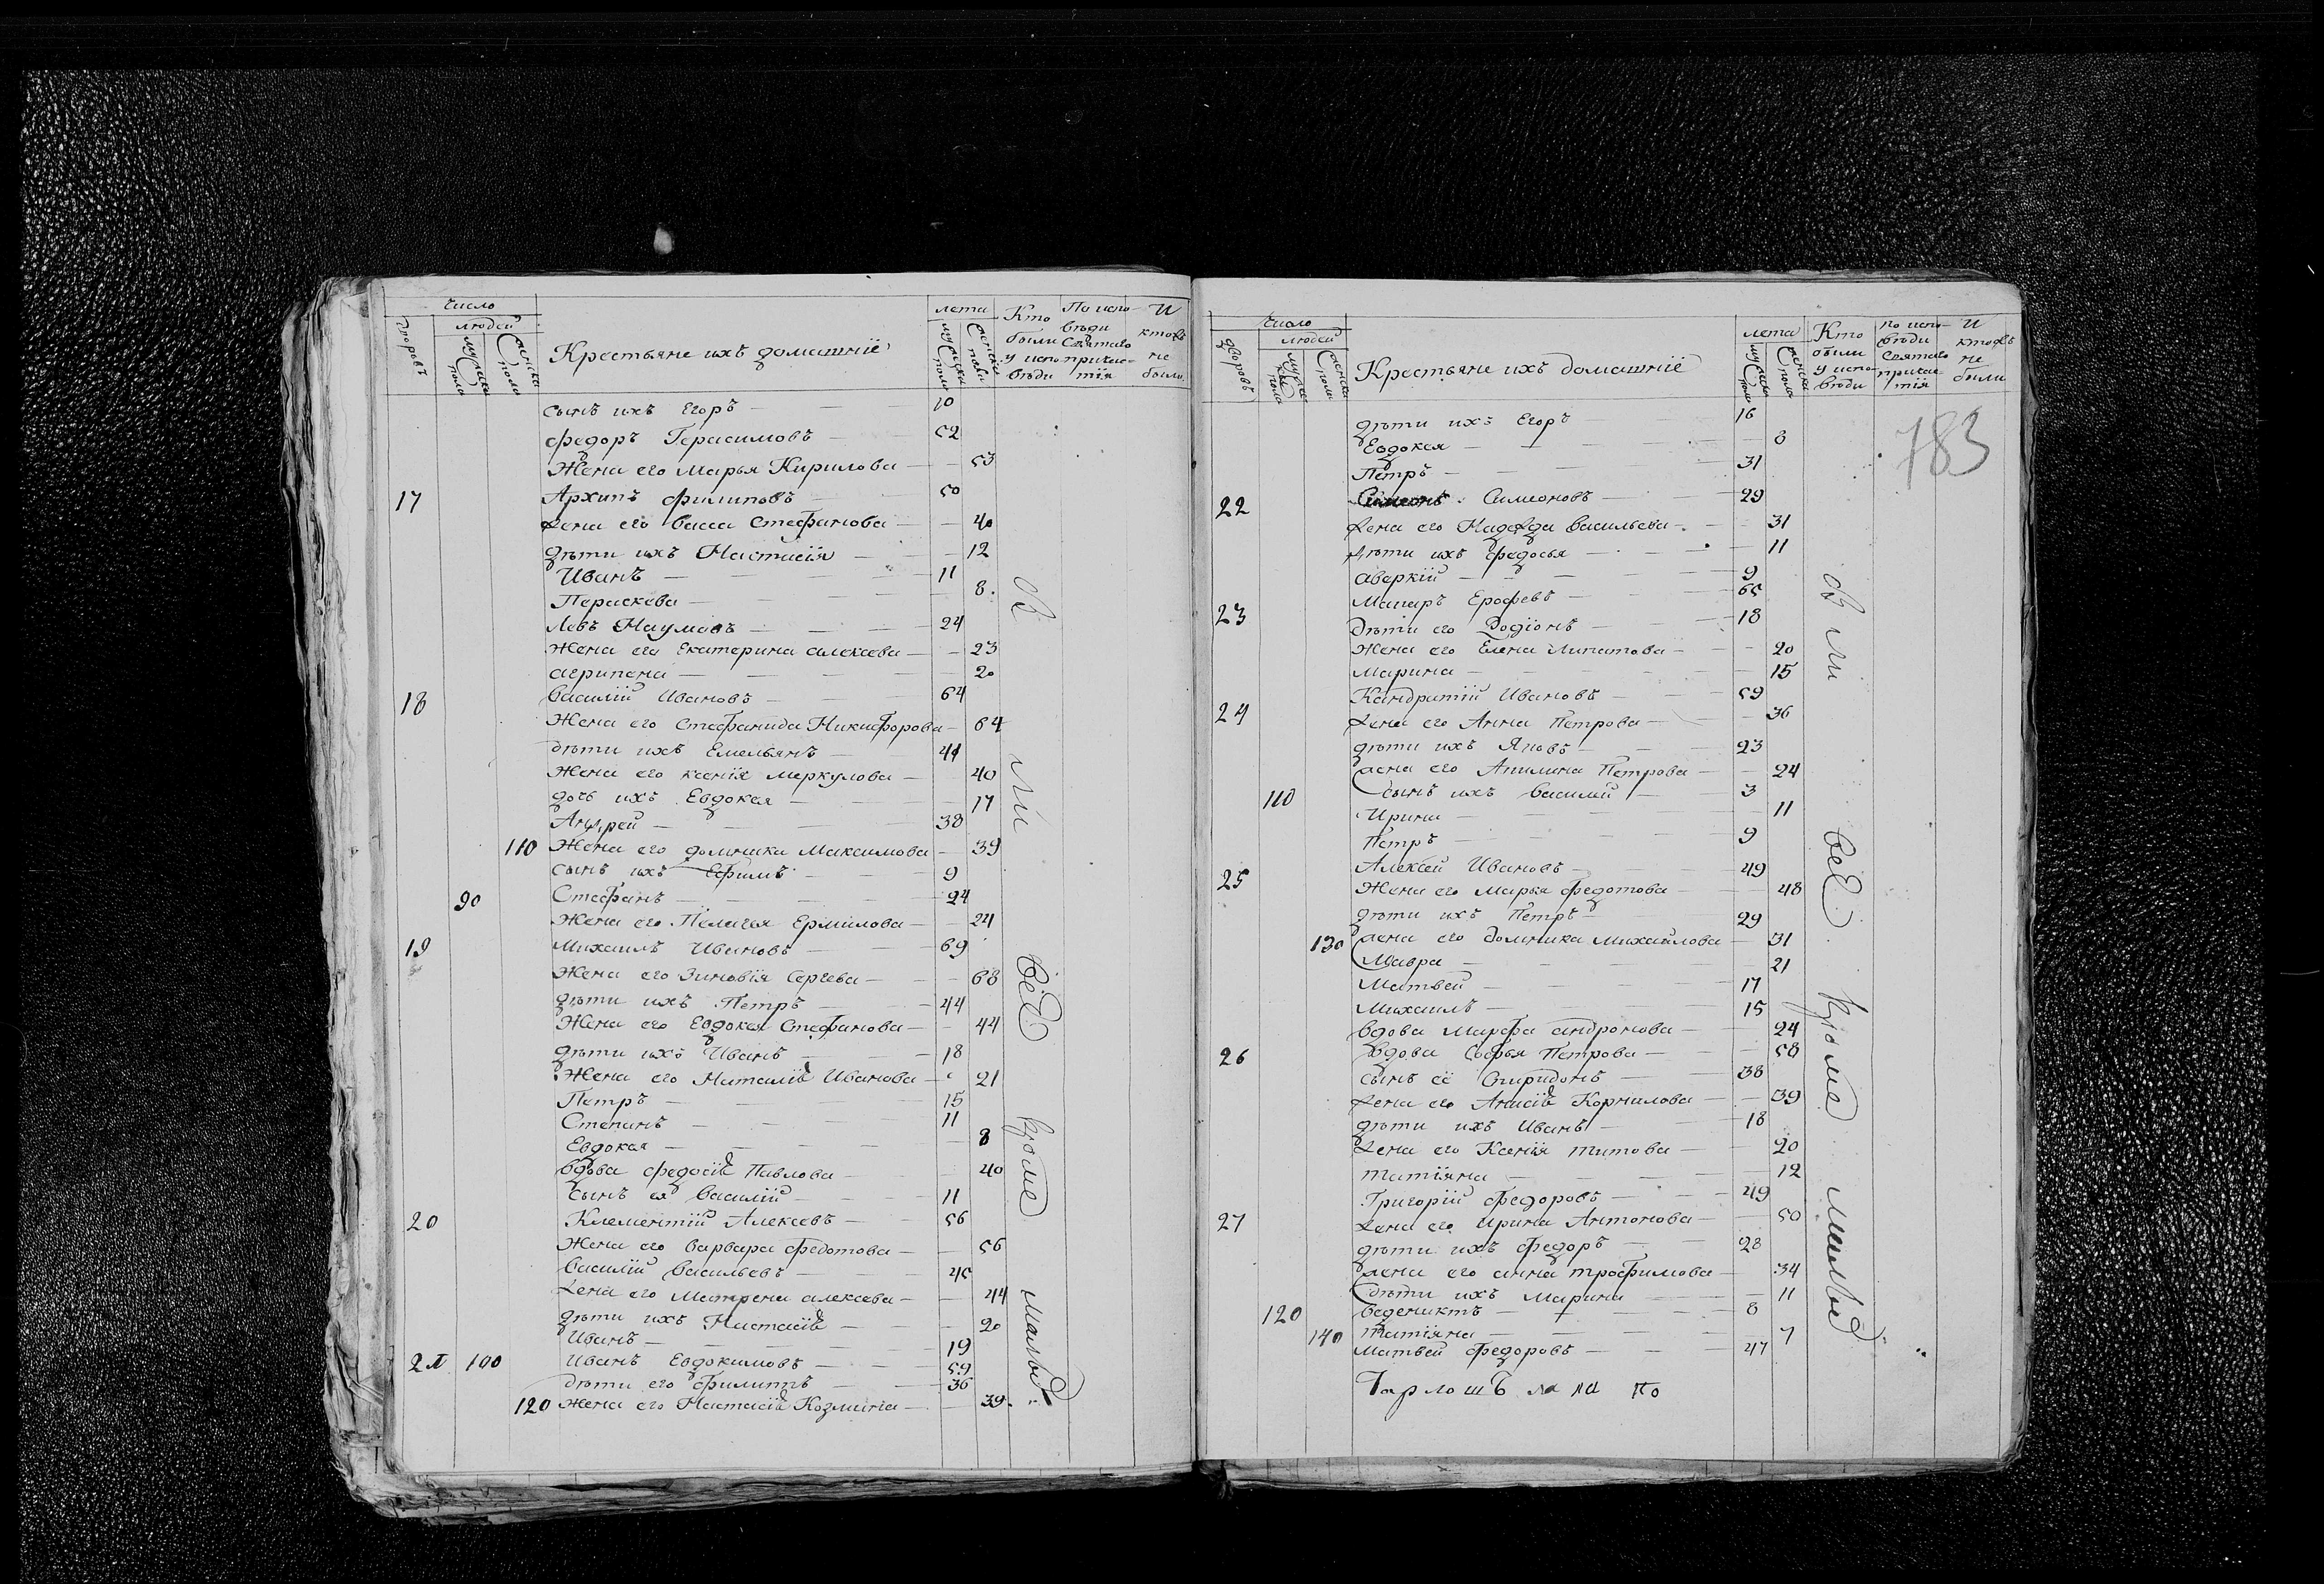 Число
людей
дворовъ
мужеска пола
женска пола
Крестьяне ихъ домашніе
лета
мужеска пола
женска пола
Кто были у исповѣди
По исповѣди святаго причастія
И кто же не были
сынъ ихъ Егоръ 10
Федоръ Герасимовъ 52
Жена его Марья Кирилова 53
17 Архипъ Филиповъ 50
Жена его Васса Стефанова 40
дѣти ихъ Настасія 12
Иванъ 11
Пераскева 8
Левъ Наумовъ 24
Жена его Екатерина алексева 23
агрипена 20
18 Василій Ивановъ 64
Жена его Стефанида Никифорова 64
дѣти ихъ Емельянъ 41
Жена его ксенія меркулова 40
дочь ихъ Евдокея 17
Андрей 38
110 Жена его домника Максимова 39
сынъ ихъ Ефимъ 9
90 Стефанъ 24
Жена его Пелагея Ермилова 24
19 Михаилъ Ивановъ 69
Жена его Зиновія Сергева 68
дѣти ихъ Петръ 44
Жена его Евдокея Стефанова 44
дѣти ихъ Иванъ 18
Жена его Наталіѣ Иванова 21
Петръ 15
Степанъ 11
Евдокея 8
вдова федосіѣ Павлова 40
сынъ ея Василій 11
20 Клементій Алексевъ 56
Жена его Варвара федотова 56
Василій Васильевъ 45
Жена его Матрена алексева 44
дѣти ихъ Настасіѣ 20
Иванъ 19
21 100 Иванъ Евдокимовъ 59
дѣти его Филиппъ 36
120 Жена его Настасіѣ Козмина 39
всѣ кроме малыхъ
Число
людей
дворовъ
мужеска пола
женска пола
Крестьяне ихъ домашніе
лета
мужеска пола
женска пола
Кто были у исповѣди
По исповѣди святаго причастія
И кто же не были
783
дѣти ихъ Егоръ 16
Евдокея 8
Петръ 31
22 Симеоновъ 29
Жена его Надежда васильева 31
дѣти ихъ федосья 11
аверкій 9
23 Макаръ Ерофевъ 65
Дѣти его Родіонъ 18
Жена его Елена Липатова 20
Марина 15
24 Кандратій Ивановъ 59
Жена его Анна Петрова 36
дѣти ихъ Яковъ 23
жена его Акилина Петрова 24
110 сынъ ихъ василий 3
Ирина 11
Петръ 9
25 Алексей Ивановъ 49
Жена его Марья федотова 48
дѣти ихъ Петръ 29
130 жена его домника михайлова 31
Мавра 21
Матвей 17
Михаилъ 15
вдова Марфа андронова 24
26 вдова Софья Петрова 58
сынъ её Спиридонъ 38
Жена его Анисіѣ Корнилова 39
дѣти ихъ Иванъ 18
Жена его Ксенія титова 20
татіяна 12
27 Григорій федоровъ 49
Жена его Ирина Антонова 50
дѣти ихъ федоръ 28
жена его анна трофимова 34
дѣти ихъ Марина 11
120 ведениктъ 8
140 татіяна 7
Матвей федоровъ 47
всѣ кроме малыхъ